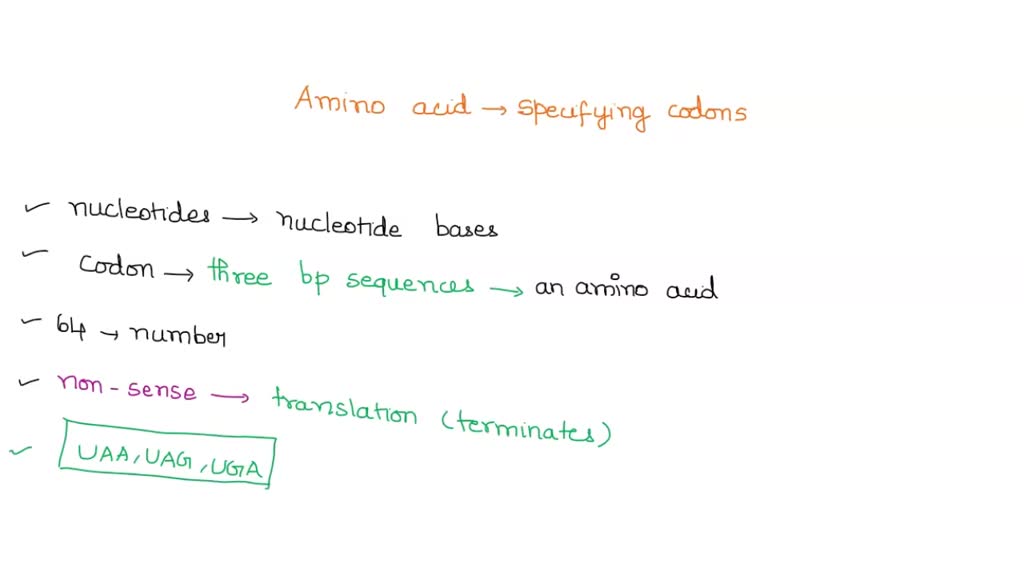 Amino acid → specifying codons
✓ nucleotides → nucleotide bases
✓ Codon → three bp sequences → an amino acid
✓ 64 → number
✓ non-sense → translation (terminates)
✓ UAA, UAG, UGA